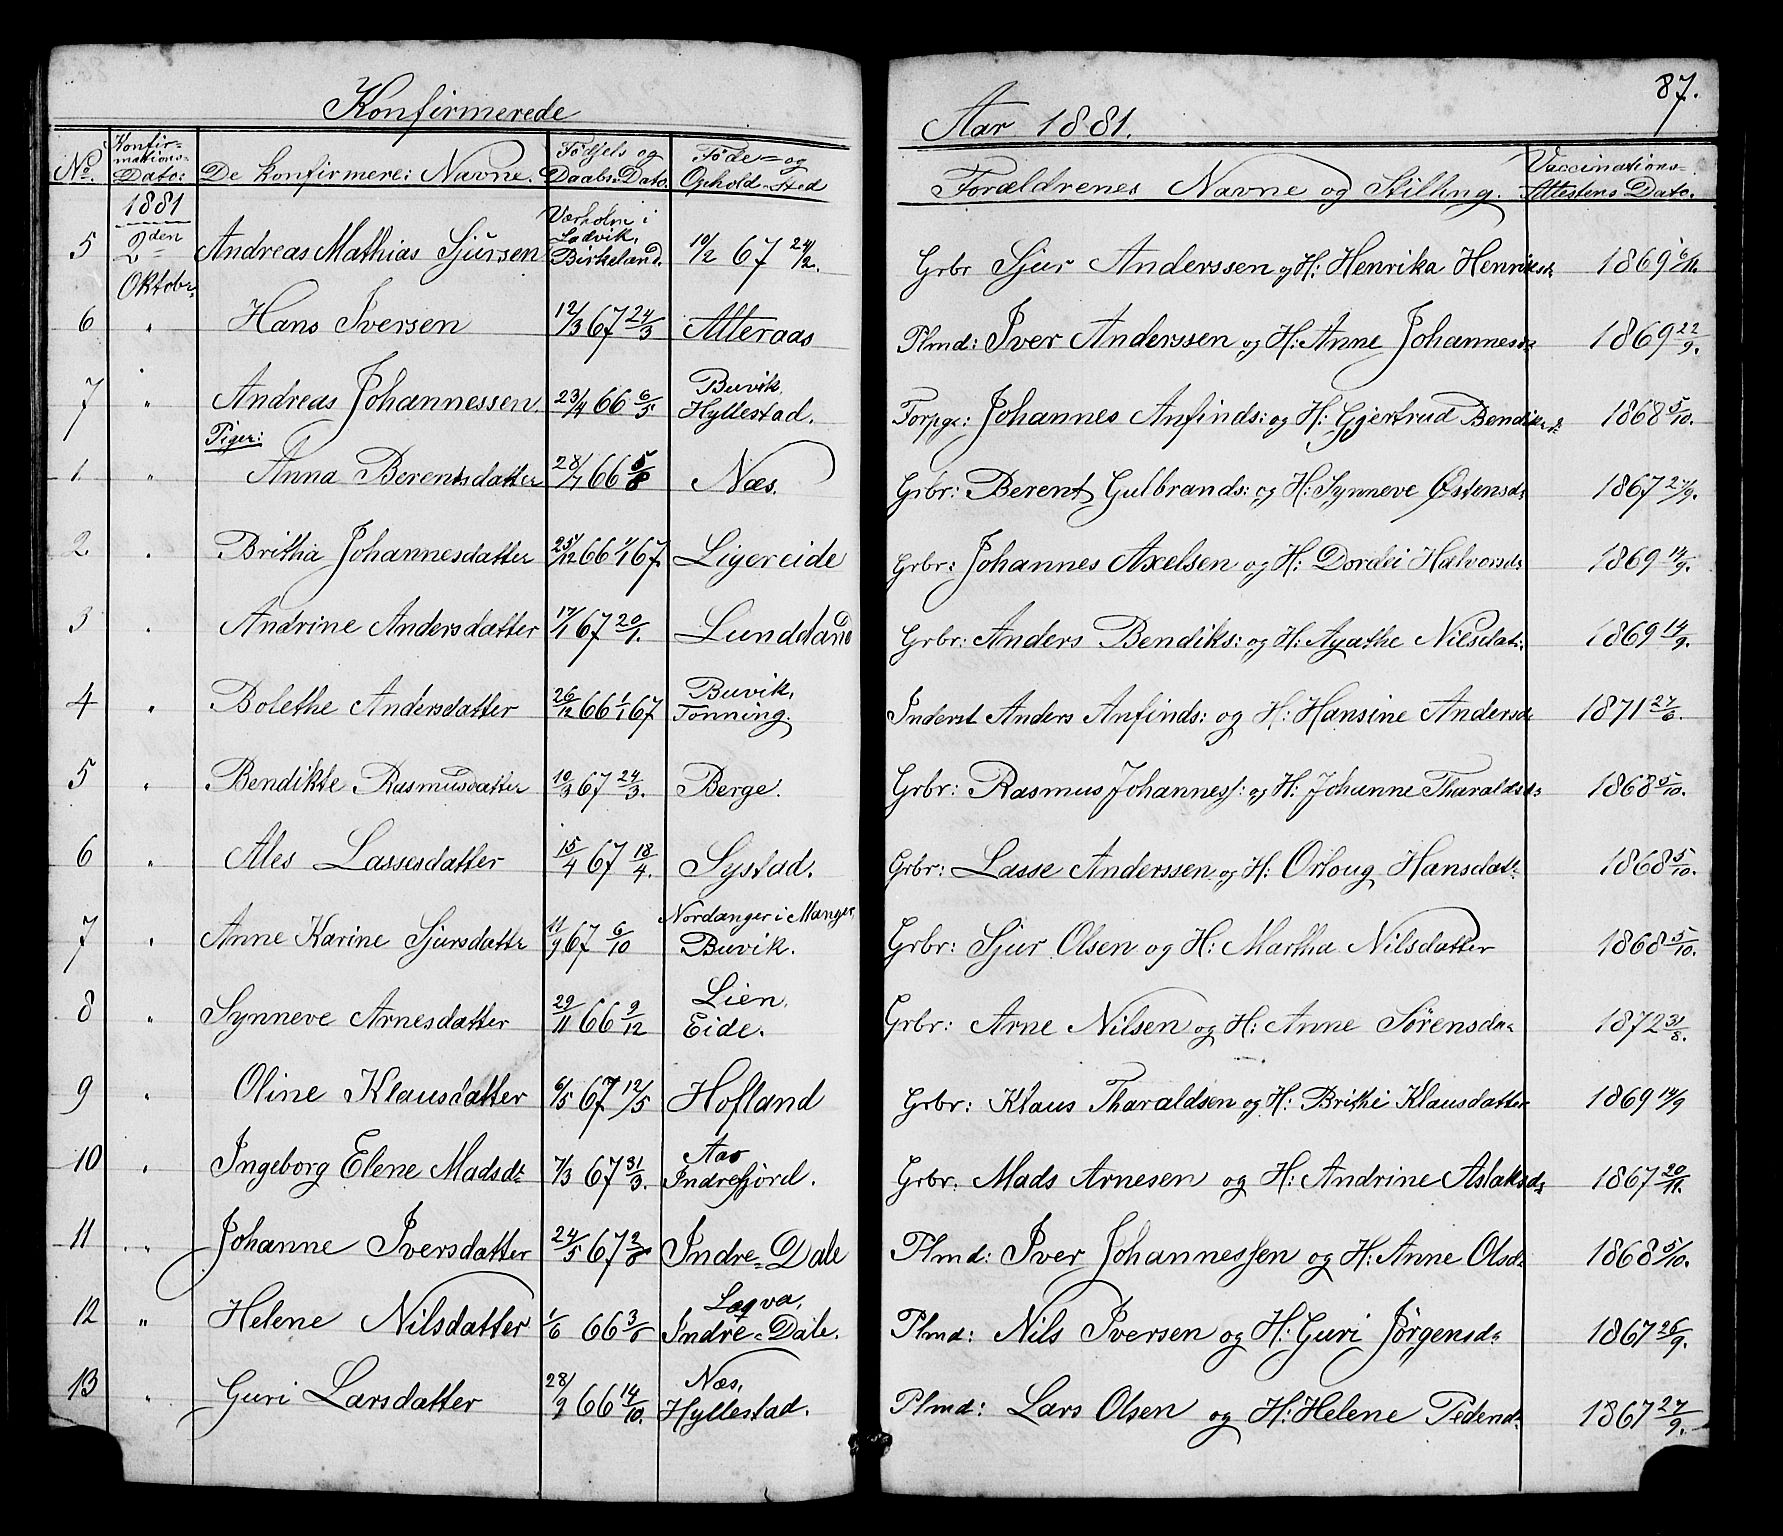 Konfirmerede
Aar 1881.
87.
No. Konfirmations-Dato: De Konfirmere: Navne. Fødsels og Daabs-Dato. Føde- og Ophold-Sted Forældrenes Navne og Stilling. Vaccinations-Attestens Dato.
1881
5 2den Oktobr. Andreas Mathias Sjursen Værholm i Ladvik. Birkeland. 10/2 67 24/2. Grbr Sjur Anderssen og H: Henrika Henriksd: 1869 6/11.
6 " Hans Iversen 12/3 67 24/3 Atteraas Plmd: Iver Anderssen og H: Anne Johannesd: 1869 22/9.
7 " Andreas Johannessen. 23/4 66 6/5 Buvik. Hyllestad. Forpgr: Johannes Anfinds: og H: Gjertrud Bendiksd: 1868 5/10.
Piger:
1 " Anna Berentsdatter 28/7 66 5/8 Næs. Grbr: Berent Gulbrands: og H: Synneve Østensd: 1867 27/9.
2 " Britha Johannesdatter 25/12 66 1/1 67. Ligereide Grbr: Johannes Axelsen og H: Dordei Halvorsd: 1869 14/9.
3 " Andrine Andersdatter 17/1 67 20/1. Lundeland Grbr: Anders Bendiks: og H: Agathe Nilsdat: 1869 14/9.
4 " Bolethe Andersdatter 26/12 66 1/1 67 Buvik, Tonning. Inderst Anders Anfinds: og H: Hansine Andersd: 1871 27/6.
5 " Bendikte Rasmusdatter 10/3 67 24/3. Berge. Grbr: Rasmus Johanness: og H: Johanne Tharaldsd: 1868 5/10.
6 " Ales Lassesdatter 15/4 67 18/4. Systad. Grbr: Lasse Anderssen og H: Orloug Hansdat: 1868 5/10.
7 " Anne Karine Sjursdattr 11/9 67 6/10 Nordanger i Manger, Buvik. Grbr: Sjur Olsen og H: Martha Nilsdatter 1868 5/10.
8 " Synneve Arnesdatter 29/11 66 9/12 Lien, Eide. Grbr: Arne Nilsen og H: Anne Sørensda: 1872 31/8.
9 " Oline Klausdatter 6/5 67 12/5 Hofland Grbr: Klaus Tharaldsen og H: Brithe Klausdatter 1869 14/9
10 " Ingeborg Elene Madsdt 7/3 67 31/3. Aas Indrefjord. Grbr. Mads Arnesen og H: Andrine Aslaksd: 1867 20/11.
11 " Johanne Iversdatter 24/5 67 2/8 Indre-Dale Plmd: Iver Johannessen og H: Anne Olsd: 1868 5/10.
12 " Helene Nilsdatter 1/6 66 3/6 Løqva, Indre-Dale. Plmd: Nils Iversen og H: Guri Jørgensd: 1867 26/9.
13 " Guri Larsdatter 28/9 66 14/10. Næs, Hyllestad. Plmd: Lars Olsen og H: Helene Pedersd: 1867 27/9.